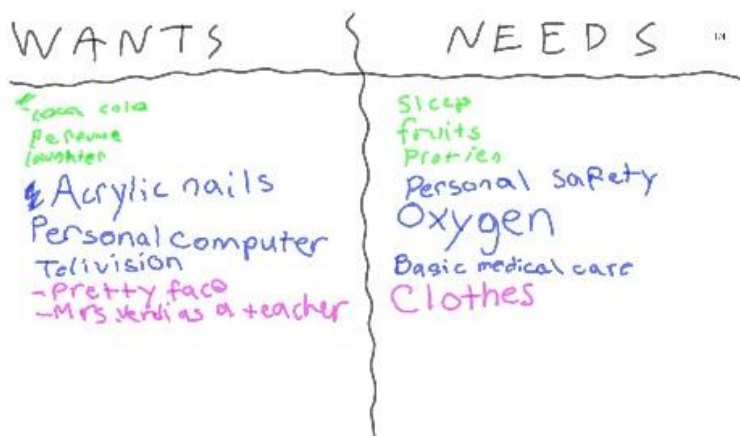 WANTS
coca cola
Perfume
laughter
Acrylic nails
Personal computer
Telivision
-Pretty face
-Mrs as a teacher
NEEDS
Sleep
fruits
Protien
Personal safety
Oxygen
Basic medical care
Clothes